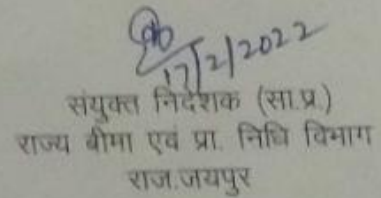 17/2/2022
संयुक्त निदेशक (सा.प्र.)
राज्य बीमा एवं प्रा. निधि विभाग
राज.जयपुर